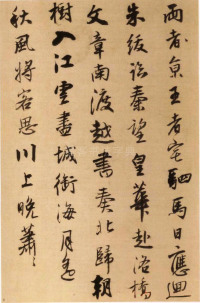 京王者宅駟馬日應迴
朱紱秦望皇華赴洛橋
文章南渡越書奏北歸朝
樹入江雲盡城銜海月遙
秋風將客思川上晚蕭〻